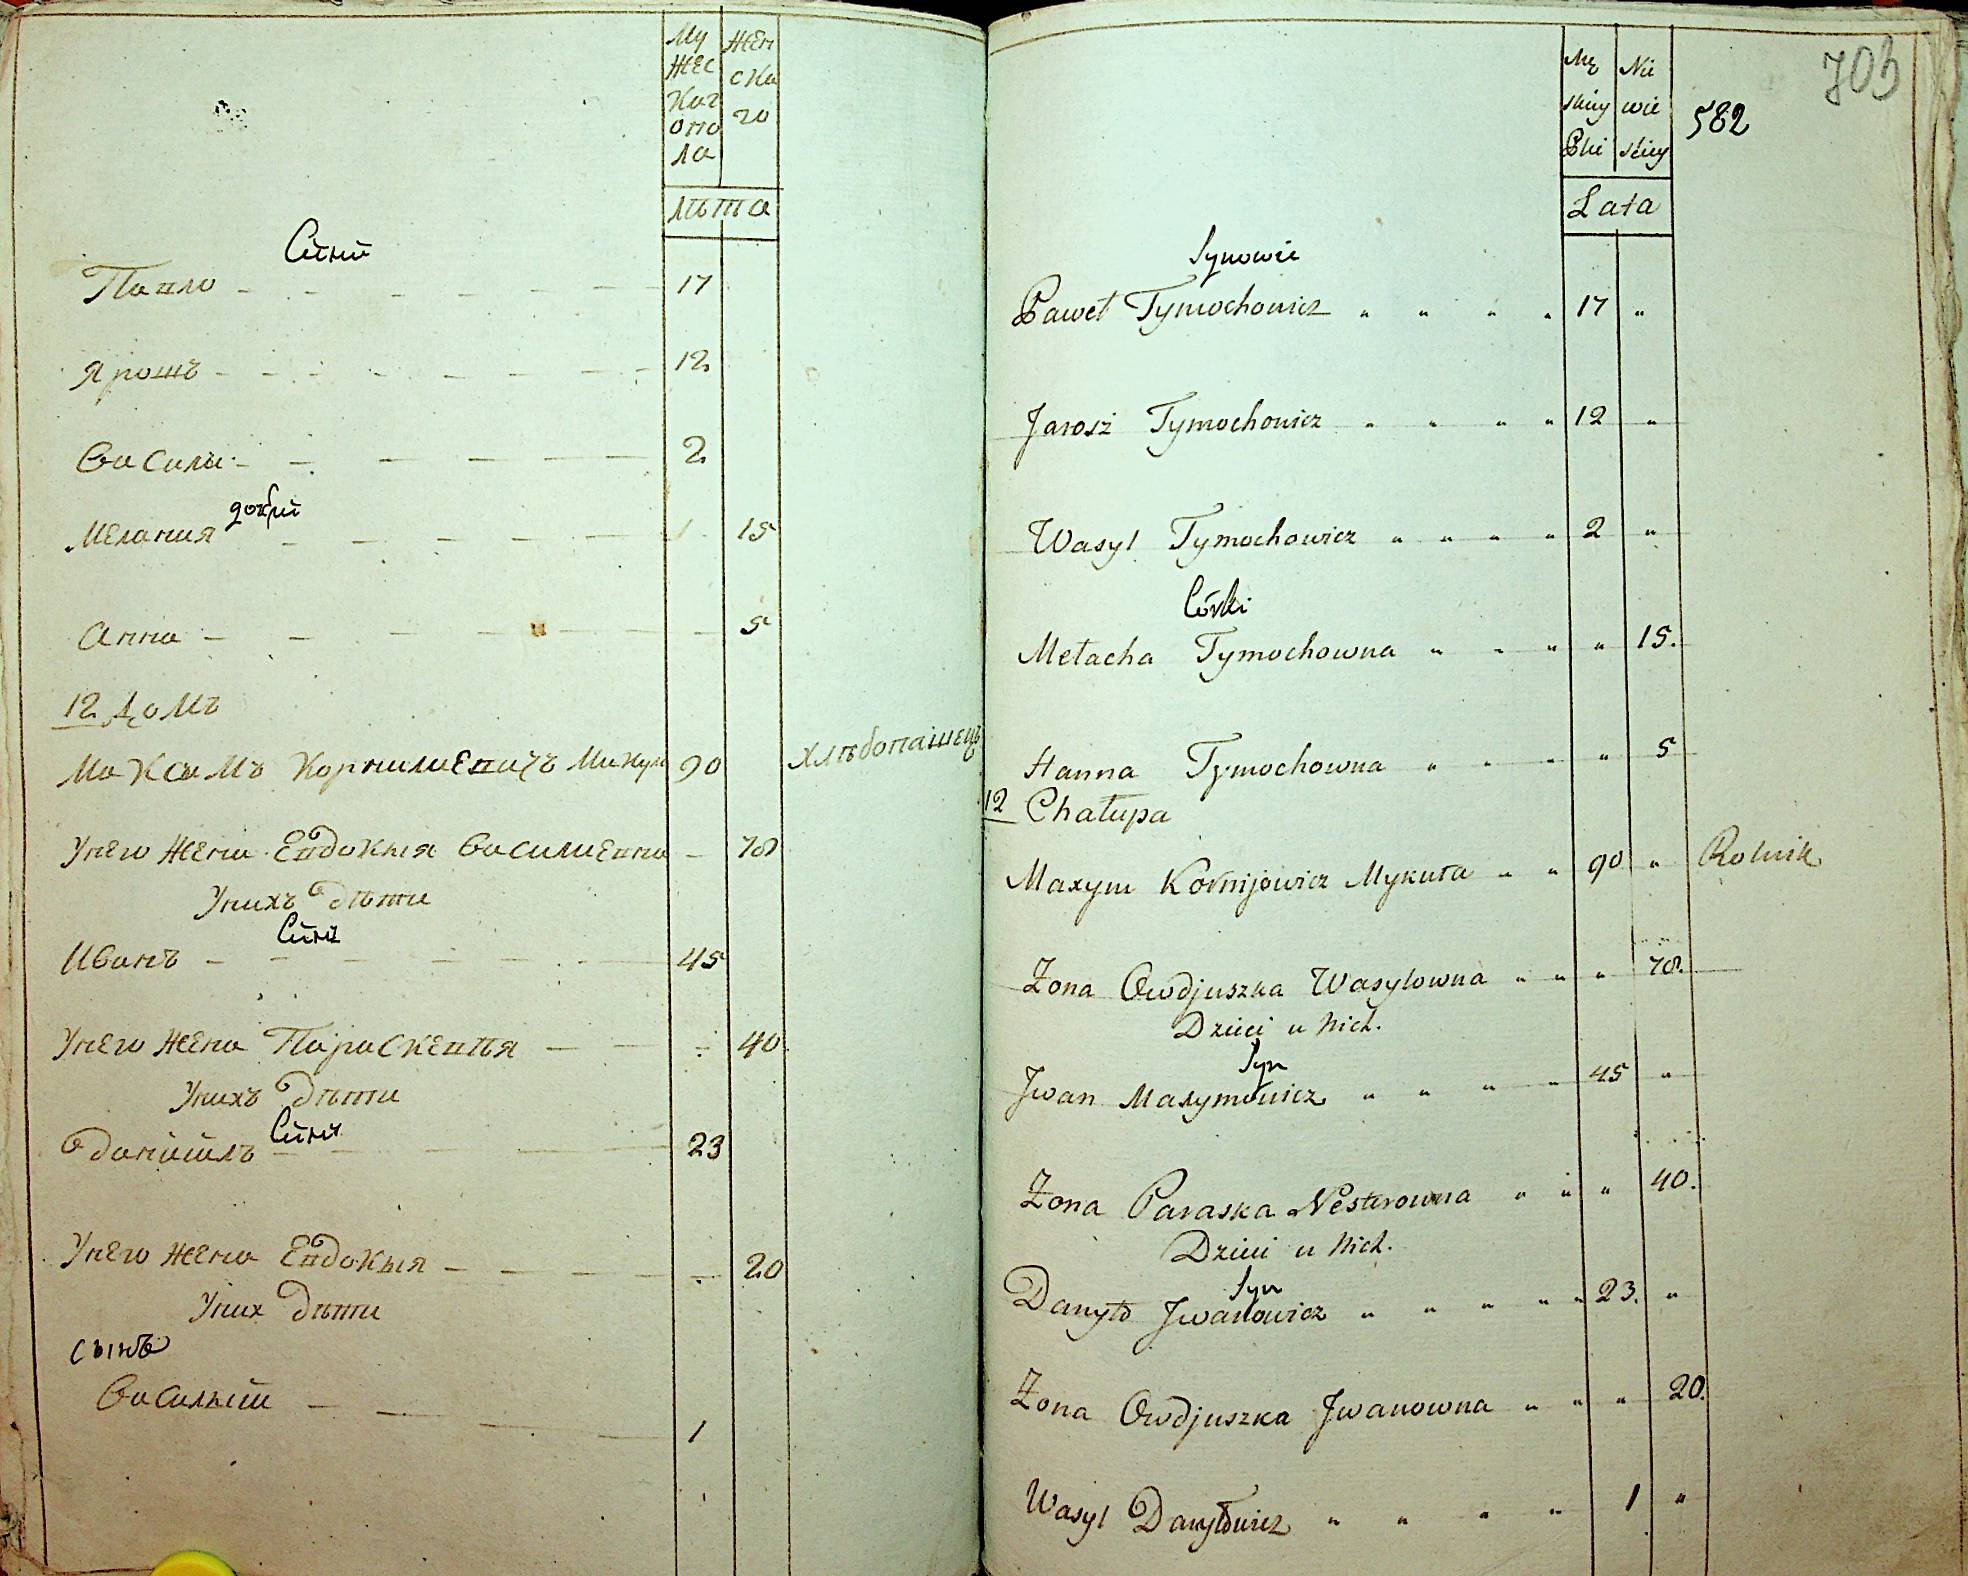 Му
жес
каг
опо
ла
жен
ска
го
лѣта
Сины
Павло 17
Ярошъ 12
Василы 2
дочки
Мелания 15
Анна 5
12 Домъ
Максымъ Корнилиевичъ Микула 90 хлѣбопашецъ
Унего жена Евдокыя Василиевна 78
Унихъ дѣти
Синъ
Иванъ 45
Унего жена Параскевѣя 40
Унихъ дѣти
Сины
данѣилъ 23
Унего жена Евдокыя 20
Уних дѣти
сынъ
Василый 1
703
582
Mę
skiey
Płci
Nie
wie
sciey
Lata
Synowie
Paweł Tymochowicz " " " " 17 "
Jarosz Tymochowicz " " " " 12 "
Wasyl Tymochowicz " " " " 2 "
Córki
Metacha Tymochowna " " " " 15.
Hanna Tymochowna " " " " 5
12 Chałupa
Maxym Kornijowicz Mykuła " " 90 " Rolnik
Żona Owdjuszka Wasylowna " " " 78.
Dzieci u nich.
Syn
Jwan Maxymowicz " " " " 45 "
Żona Paraska Nesterowna " " " 40.
Dzieci u nich.
Syn
Danyło Jwanowicz " " " " " 23. "
Żona Owdjuszka Jwanowna " " " 20.
Wasyl Danyłowicz " " " " 1 "